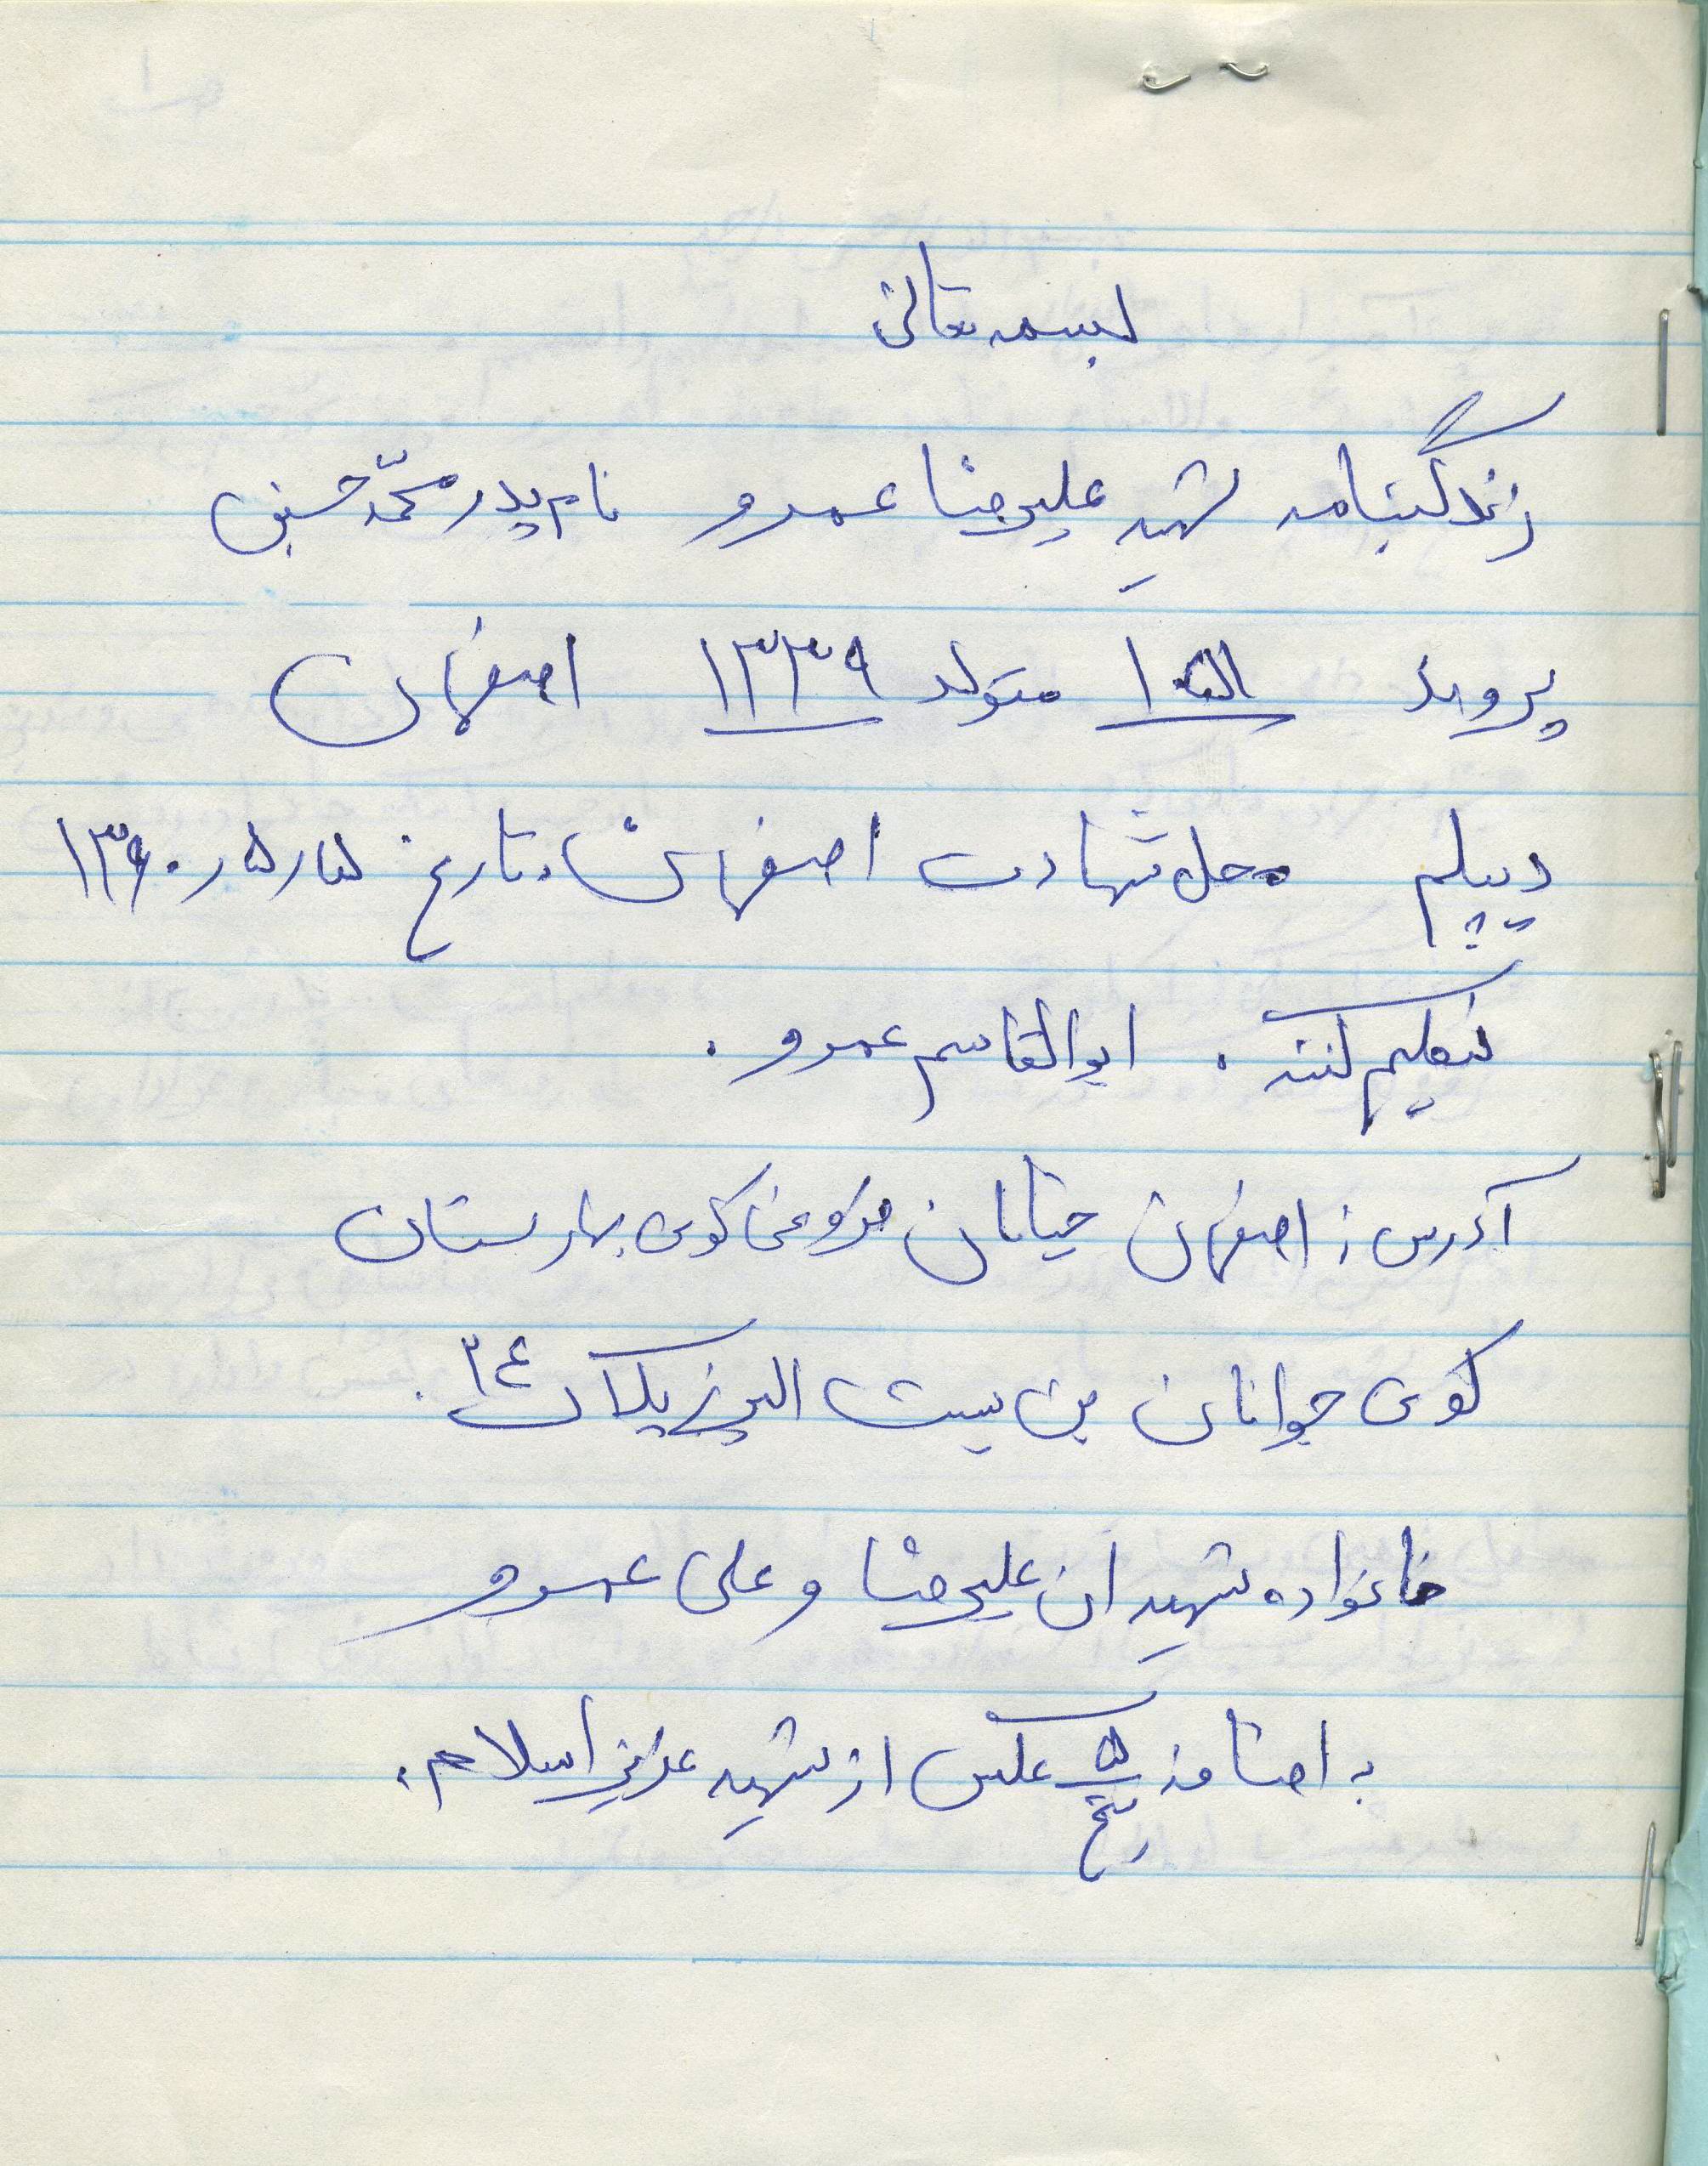 بسمه تعالی
زندگینامه شهید علیرضا عمرو نام پدر محمدحسین
پرونده متولد ۱۳۳۹ اصفهان
دیپلم محل شهادت اصفهان تاریخ ۵ر۵ر۱۳۶۰
تنظیم کننده . ابوالقاسم عمرو .
آدرس : اصفهان خیابان فروغی کوی بهارستان
کوی جوانان بن بست البرز پلاک ۳۴ .
خانواده شهیدان علیرضا و علی عمرو
به اضافه ۵ عکس از شهید عزیز اسلام .
پنج